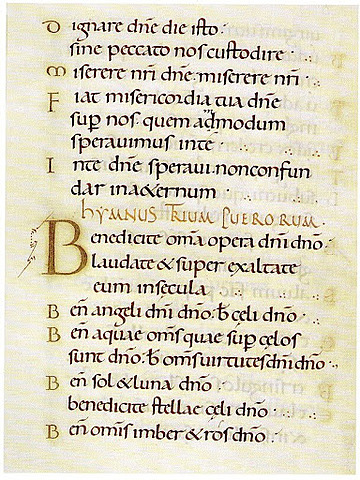 D ignare dñe die isto·
sine peccato nos custodire·
M iserere nr̄i dñe· miserere nr̄i·
F iat misericordia tua dñe
sup̄ nos· quem admodum
speravimus inte·
I nte dñe speravi· nonconfun
dar inaeternum·
hYMNUS TRIUM PUERORUM·
B enedicite om̄a opera dñi dño·
laudate & super exaltate
eum insęcula·
B eñ angeli dñi dño· b̄ cęli dño·
B eñ aquae om̄s quae sup̄ cęlos
sunt dño· b̄ om̄s uirtutes dñi dño·
B eñ sol & luna dño·
benedicite stellae cęli dño·
B eñ omīs imber & ros dño·